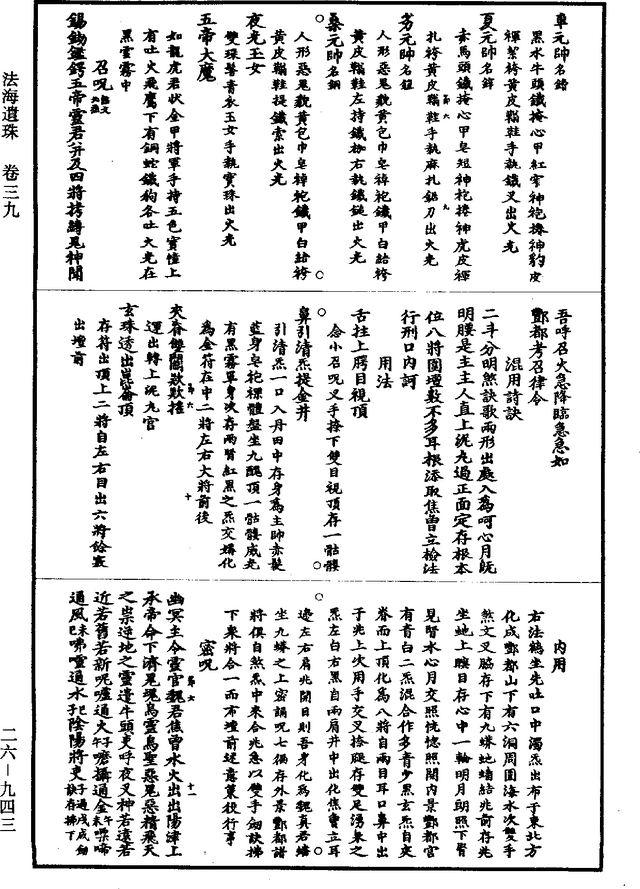 法海遺珠 卷三九
二六-九四三
車元帥名䤼
黑水牛頭鐵掩心甲紅窄神袍捲神豹皮
褌絮袴黃皮鞋手執鐵叉出火光
夏元帥名
赤馬頭鐵掩心甲皂短神袍捲神虎皮褌
扎袴黃皮鞋手執麻扎鋸刀出火光
元帥名
人形惡鬼貌黃包巾皂袍鐵甲白結袴
黃皮鞋左持鐵枷右執鐵鎚出火光
桑元帥名鋼
人形惡鬼貌黃包巾皂袍鐵甲白結袴
黃皮鞋提鐵索出火光
夜光玉女
雙珠髻青衣玉女手執寶珠出火光
五帝大魔
如龍虎君狀金甲將軍手持五色寶幢上
有吐火飛鷹下有銅蛇鐵狗各吐火光在
黑雲霧中
召呪
錫鋤鑑鍔五帝靈君并及四將拷縛鬼神聞
吾呼召火急降臨急急如
酆都考召律令
混用詩訣
二斗分明煞訣歌兩形出處入爲呵心月既
明腰是主主人直上泥丸過正面定存根本
位八將圍壇數不多耳根添取焦曾立檢法
行刑口內訶
用法
舌拄上腭目視頂
念小召呪叉手撩下雙目視頂存一骷髏
鼻引清炁提金井
引清炁一口入丹田中存身爲主帥赤髮
藍身皂袍裸體盤坐九醜頂一骷髏威光
有黑雲罩身次存兩腎紅黑之炁交媾化
爲金符在中二將左右大將前後
夾脊雙關款款擡
運出轉上泥九宮
玄珠透出崑崙頂
存符出頂上二將自左右目出六將餘竅
出壇前
內用
右法鶴坐先吐口中濁炁出布于東北方
化成酆都山下有六洞周圍海水次雙手
煞文叉脇存下有九蟒地墻結兆前存兆
坐地上瞑目存心中一輪明月朗照下腎
見腎水心月交照恍惚照開內景酆都宮
有青白二炁混合作多青少黑玄炁自夾
脊而上頂化爲八將自兩目耳口鼻中出
于兆上次用手交叉撩腿存雙足湧泉之
炁左白右黑自兩肩井中出化焦曾立耳
邊左右肩兆開目則吾身化爲魏真君蟠
坐九蟒之上密誦呪七徧存外景酆都諸
將俱自煞炁中來合兆急以雙手劍訣拂
下衆將合一而布壇前述意策役行事
密呪
幽冥主令靈官魏君焦曾水火出出陽津上
承帝命下濟尾瑰烏靈烏聖惡鬼惡精飛天
之祟逆地之靈遣牛頭吏呼夜叉神若遠若
近若舊若新呢嚧通火膽攝通金嘿啼
通風呬嚧通水陰陽將吏